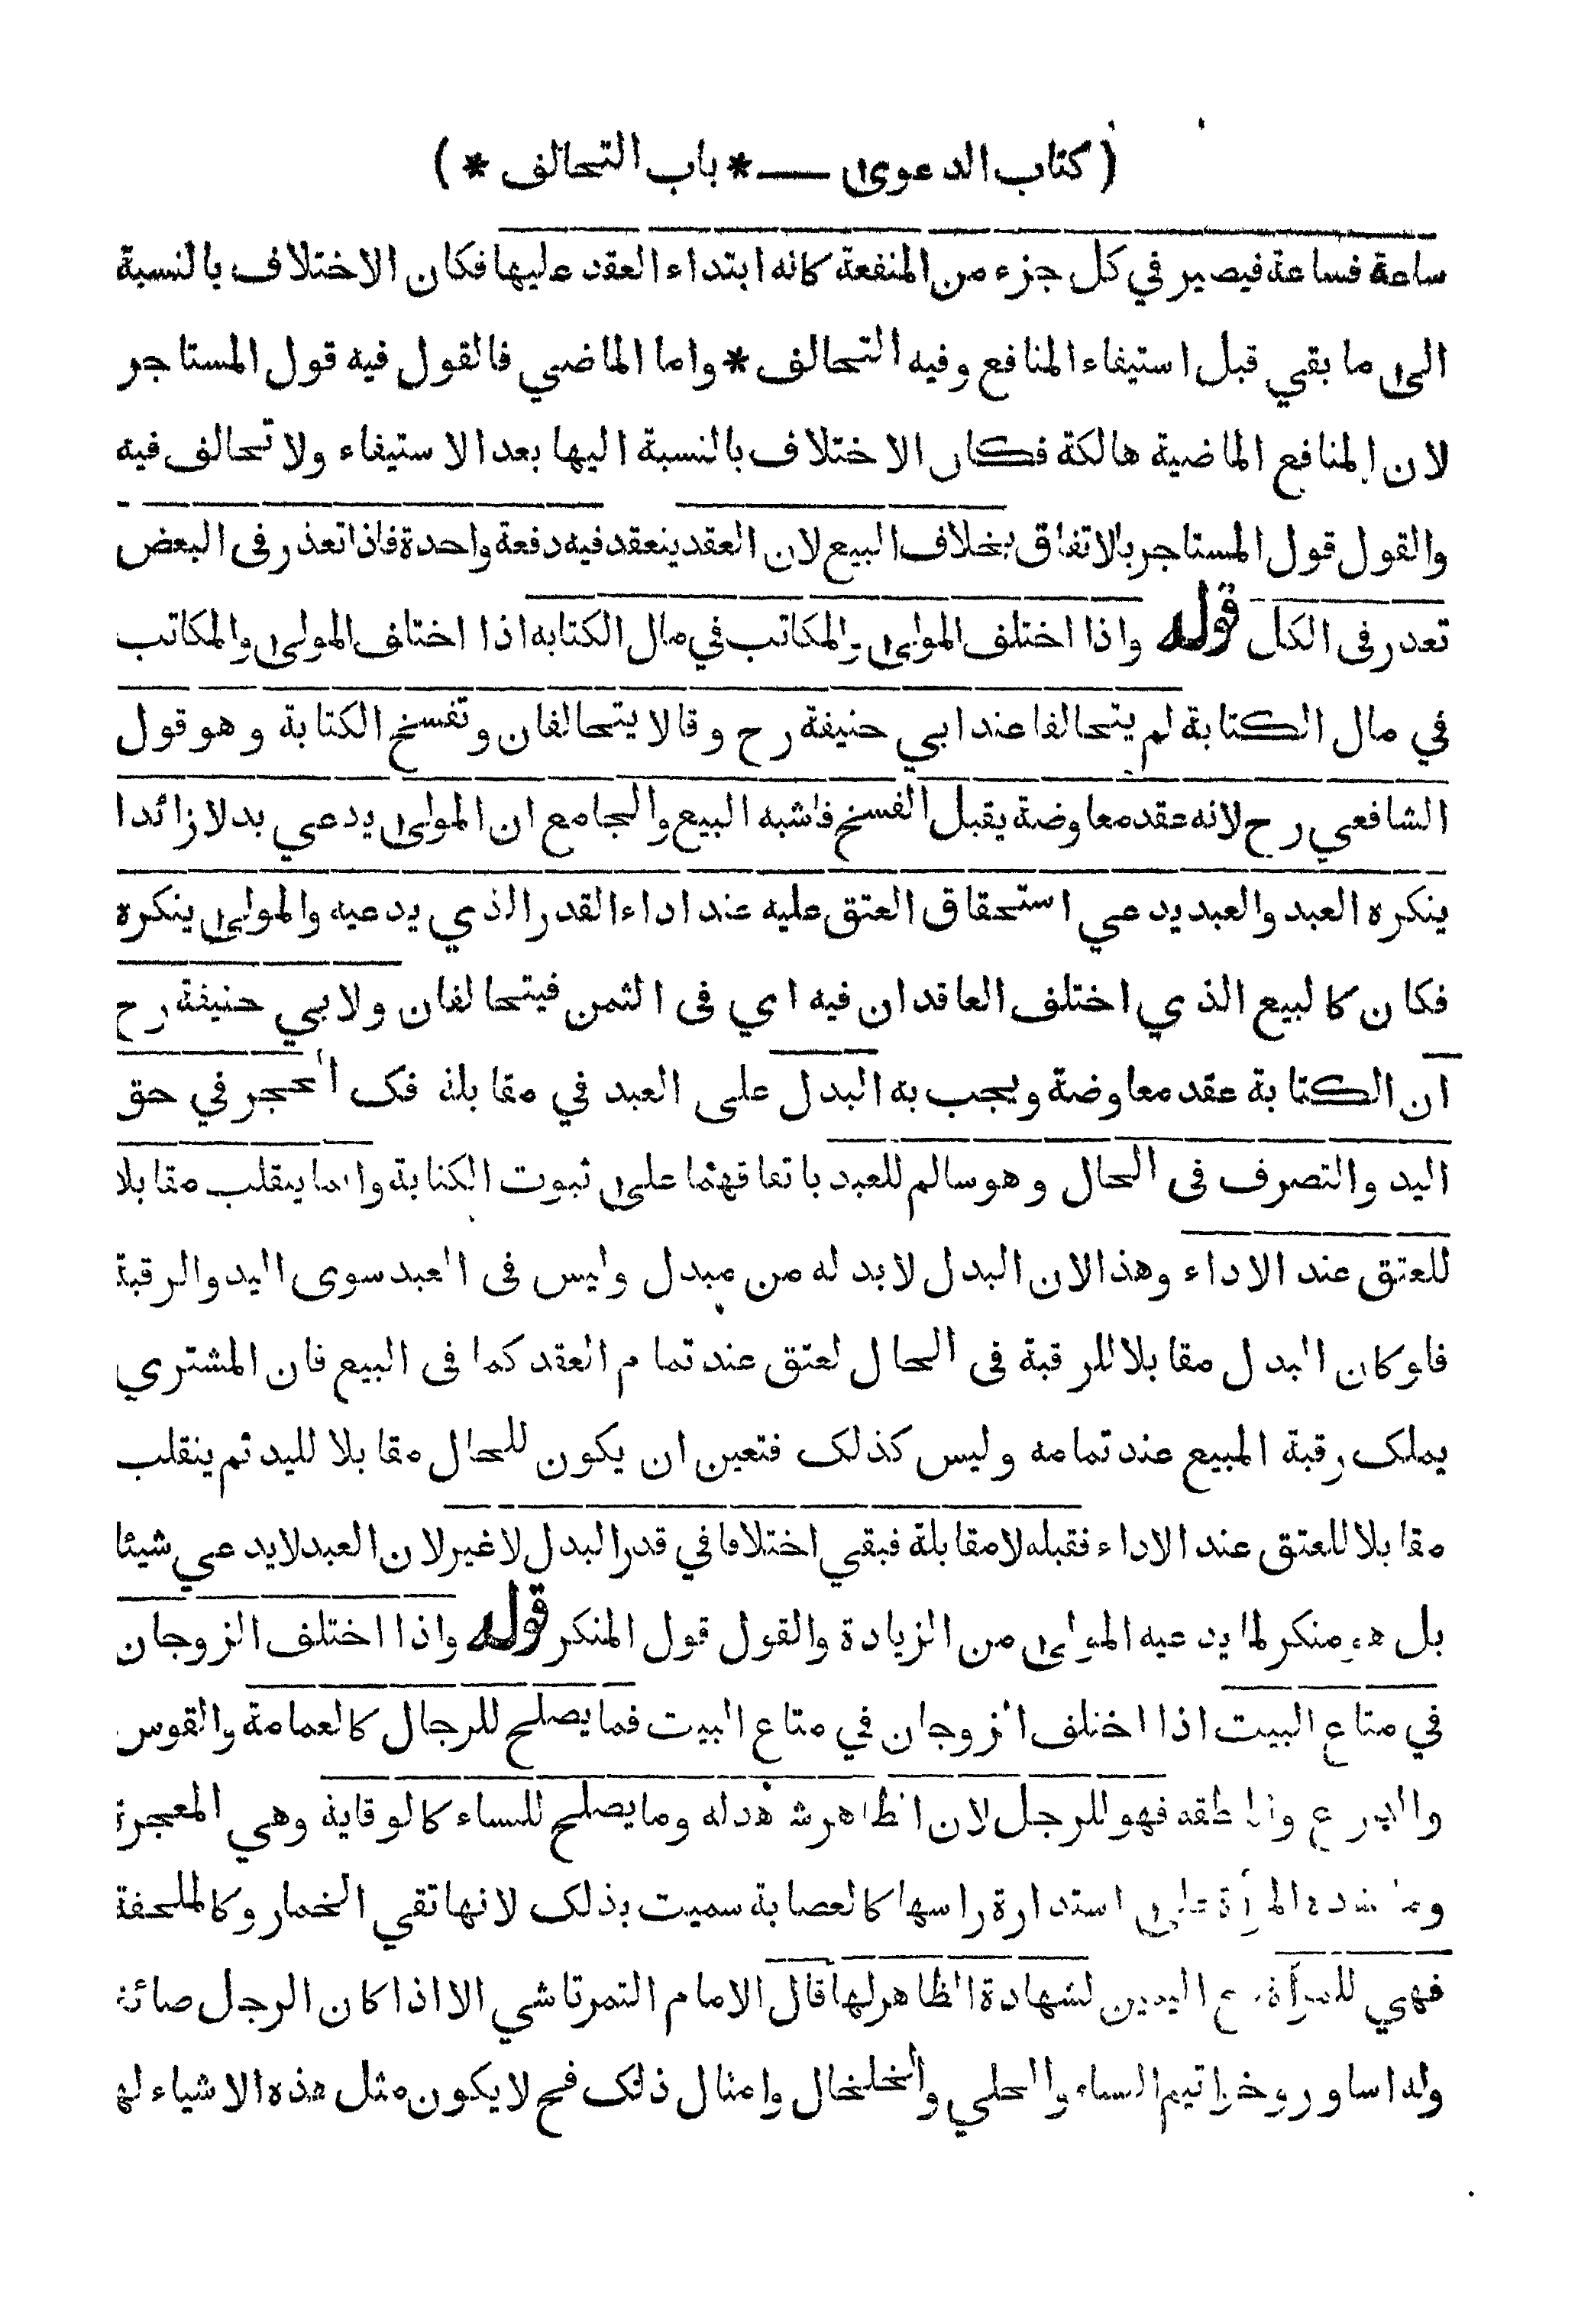 ( كتاب الدعوى — * باب التحالف * )
ساعة فساعة فيصير في كل جزء من المنفعة كانه ابتداء العقد عليها فكان الاختلاف بالنسبة
الى ما بقي قبل استيفاء المنافع وفيه التحالف * واما الماضي فالقول فيه قول المستاجر
لان المنافع الماضية هالكة فكان الاختلاف بالنسبة اليها بعد الاستيفاء ولا تحالف فيه
والقول قول المستاجر بالاتفاق بخلاف البيع لان العقد ينعقد فيه دفعة واحدة فاذا تعذر فى البعض
تعدر فى الكل قوله واذا اختلف المولى والمكاتب في مال الكتابه اذا اختلف المولى والمكاتب
في مال الكتابة لم يتحالفا عند ابي حنيفة رح وقالا يتحالفان وتفسخ الكتابة وهو قول
الشافعي رح لانه عقد معاوضة يقبل الفسخ فاشبه البيع والجامع ان المولى يدعي بدلا زائدا
ينكره العبد والعبد يدعي استحقاق العتق عليه عند اداء القدر الذي يدعيه والمولى ينكره
فكان كالبيع الذي اختلف العاقدان فيه اي فى الثمن فيتحالفان ولابي حنيفة رح
ان الكتابة عقد معاوضة ويجب به البدل على العبد في مقابلة فك الحجر في حق
اليد والتصرف فى الحال وهو سالم للعبد باتفاقهما على ثبوت الكتابة وانما ينقلب مقابلا
للعتق عند الاداء وهذا لان البدل لابد له من مبدل وليس فى العبد سوى اليد والرقبة
فلو كان البدل مقابلا للرقبة فى الحال لعتق عند تمام العقد كما فى البيع فان المشتري
يملك رقبة المبيع عند تمامه وليس كذلك فتعين ان يكون للحال مقابلا لليد ثم ينقلب
مقابلا للعتق عند الاداء فقبله لا مقابلة فبقي اختلافا في قدر البدل لا غير لان العبد لا يدعي شيئا
بل هو منكر لما يدعيه المولى من الزيادة والقول قول المنكر قوله واذا اختلف الزوجان
في متاع البيت اذا اختلف الزوجان في متاع البيت فما يصلح للرجال كالعمامة والقوس
والدرع والمنطقه فهو للرجل لان الظاهر شاهد له وما يصلح للنساء كالوقاية وهي المعجرة
وما تشده المرأة على استدارة راسها كالعصابة سميت بذلك لانها تقي الخمار وكالملحفة
فهي للمرأة مع اليمين لشهادة الظاهر لها قال الامام التمرتاشي الا اذا كان الرجل صائغ
وله اساور وخواتيم النساء والحلي والخلخال وامثال ذلك فح لا يكون مثل هذه الاشياء لها